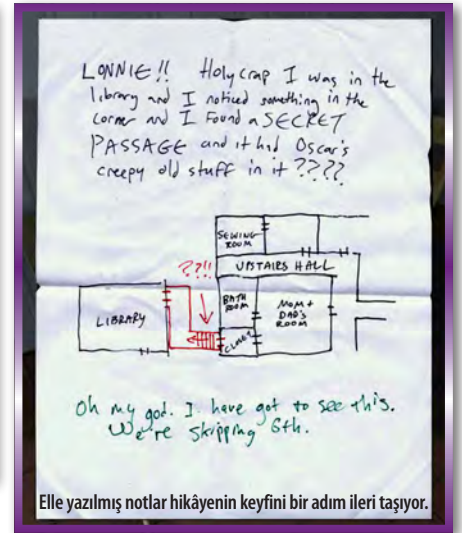 LONNIE!! Holy crap I was in the
library and I noticed something in the
corner and I found a SECRET
PASSAGE and it had Oscar's
creepy old stuff in it????
SEWING
ROOM
??!!
UPSTAIRS HALL
LIBRARY
BATH
ROOM
MOM +
DAD'S
ROOM
CLOSET
Oh my god. I have got to see this.
We're skipping 6th.
Elle yazılmış notlar hikâyenin keyfini bir adım ileri taşıyor.